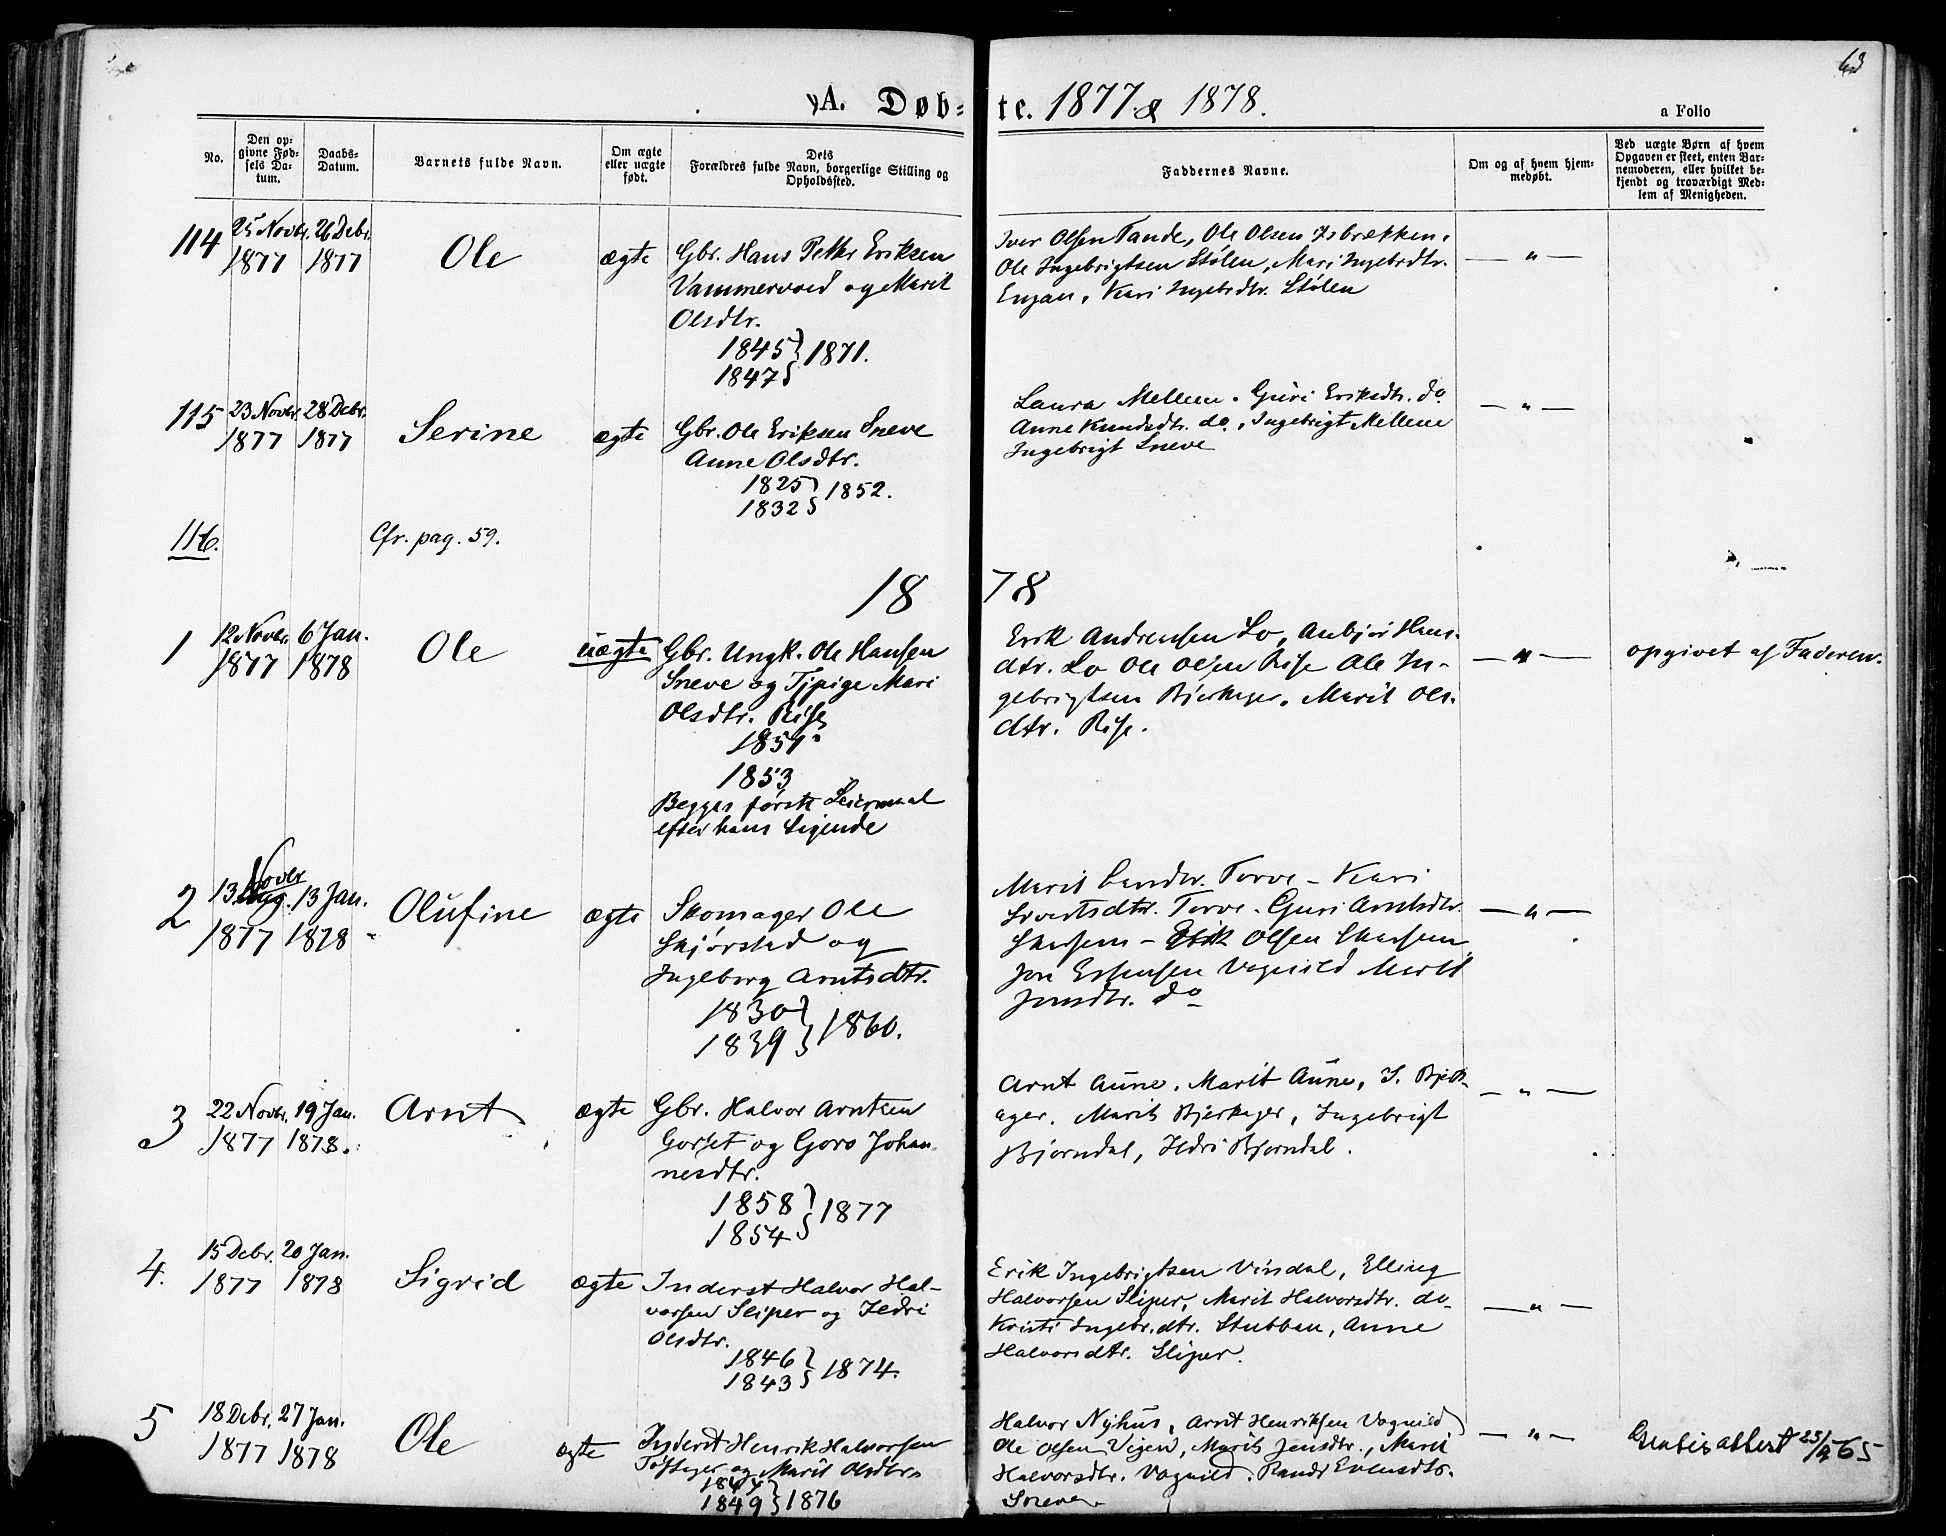 63
A. Døb=te. 1877 & 1878.
a Folio
No.
Den op-
givne Fød-
sels Da-
tum.
Daabs-
Datum.
Barnets fulde Navn.
Om ægte
eller uægte
født.
Dets
Forældres fulde Navn, borgerlige Stilling og
Opholdssted.
Faddernes Navne.
Om og af hvem hjem-
medøbt.
Ved uægte Børn af hvem
Opgaven er skeet, enten Bar-
nemoderen, eller hvilket be-
kjendt og troværdigt Med-
lem af Menigheden.
114
25 Novbr.
1877
26 Debr.
1877
Ole
ægte
Gbr. Hans Peter Eriksen
Vammervold og Marit
Olsdtr.
1845
1847 } 1871.
Iver Olsen Tande, Ole Olsen Isbrækken,
Ole Ingebrigtsen Stølen, Mari Ingebrdtr.
Engan, Kari Ingebrdtr. Stølen
— " —
115
23 Novbr.
1877
28 Debr.
1877
Serine
ægte
Gbr. Ole Eriksen Sneve
Anne Olsdtr.
1825
1832 } 1852.
Laura Mellem. Guri Eriksdtr. do
Anne Knudsdtr. do., Ingebrigt Mellem
Ingebrigt Sneve
— " —
116.
Cfr. pag. 59.
1878
1
12 Novbr.
1877
6 Jan.
1878
Ole
uægte
Gbr. Ungk. Ole Hansen
Sneve og Tjpige Mari
Olsdtr. Rise
1851
1853
Begges første Leiermaal
efter hans Sigende
Erik Andreasen Lo, Anbjør Hans-
dtr. Lo Ole Olsen Rise Ole In-
gebrigtsen Bjerkager. Marit Ols-
dtr. Rise.
— " —
opgivet af Faderen.
2
13 Novbr
1877
13 Jan.
1878
Olufine
ægte
Skomager Ole
Skjørstad og
Ingeborg Arntsdtr.
1830
1839 } 1860.
Marit Torve - Kari
Sivertsdtr. Torve - Guri Arntsdtr.
- Erik Olsen
Jon Estensen Vognild Marit
Jonsdtr. do
— " —
3
22 Novbr.
1877
19 Jan.
1878.
Arnt
ægte
Gbr. Halvor Arntsen
Gorset og Goro Johan
nesdtr.
1858
1854 } 1877
Arnt Aune, Marit Aune, I. Bjerk-
ager. Marit Bjerkager, Ingebrigt
Bjørndal, Ildri Bjørndal.
— " —
4.
15 Debr.
1877
20 Jan.
1878
Sigrid
ægte
Inderst Halvor Hal-
vorsen Sliper og Ildri
Olsdtr.
1846
1843 } 1874.
Erik Ingebrigtsen Vindal, Elling
Halvorsen Sliper, Marit Halvorsdtr. do-
Kristi Ingebr.dtr. Stubban, Anne
Halvorsdtr. Sliper.
— " —
5
18 Debr.
1877
27 Jan.
1878
Ole
ægte
Inderst Henrik Halvorsen
Toftager og Marit Olsdtr.
1849 } 1876
Halvor Nyhus, Arnt Henriksen Vognild
Ole Olsen Vigen, Marit Jensdtr., Marit
Halvorsdtr. Vognild. Randi Evensdtr.
Sneve.
— " —
Gratisattest 25/9 65